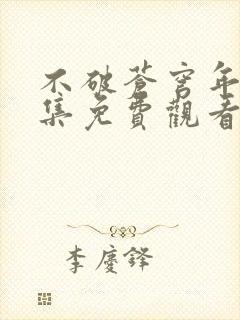 不破蒼穹年
集免費觀看
李慶鋒